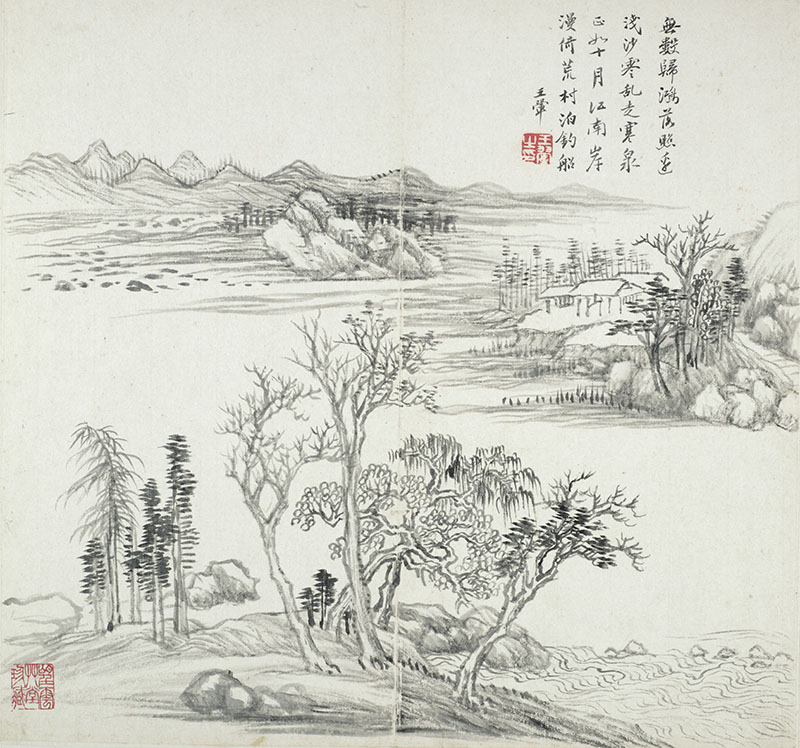 無數歸鴻落照邊
淺沙零乱走寒泉
正如十月江南岸
漫倚荒村泊釣船
王翬
王翬之印